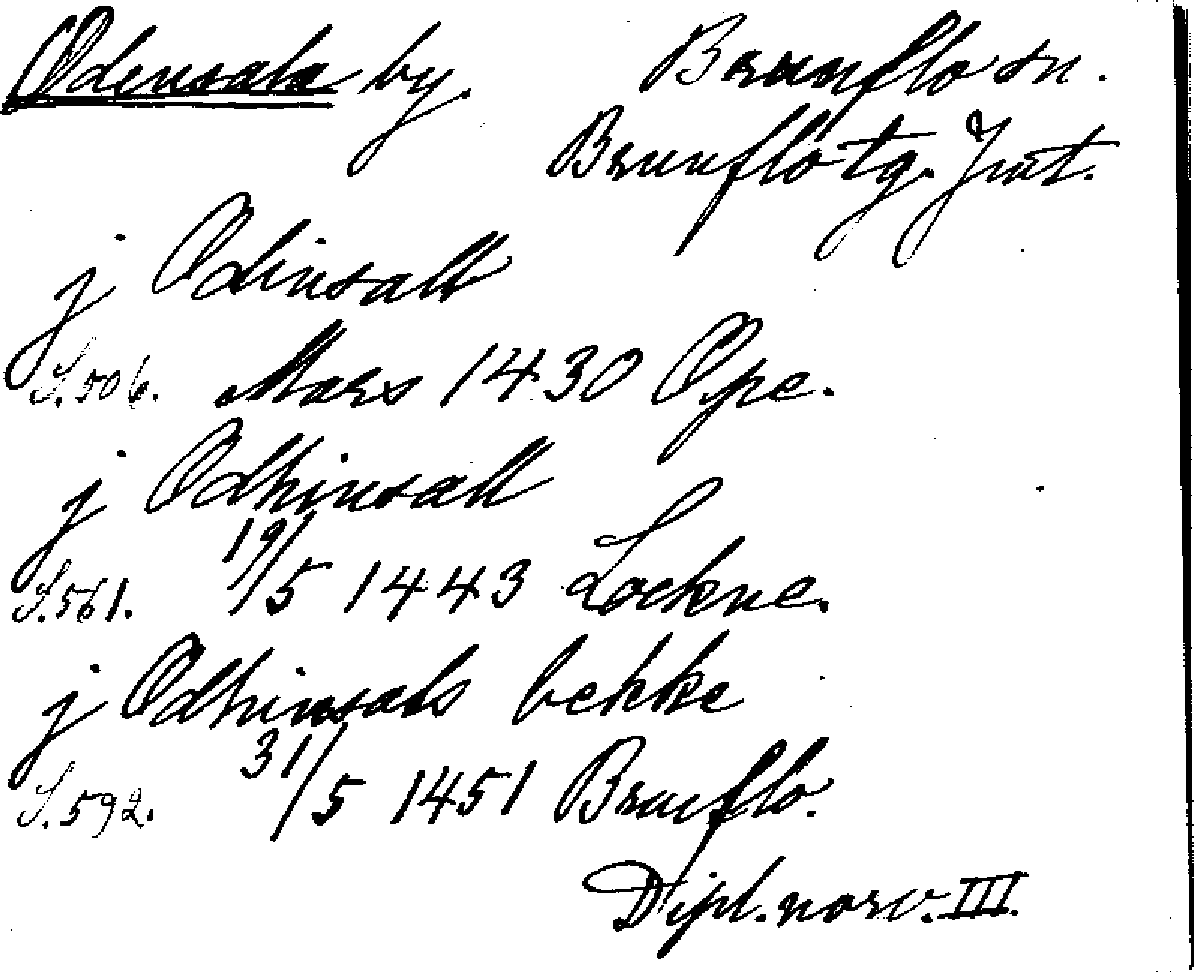 Odensala by. Brunflo sn.
Brunflo tg. Jmt.
j Odinsall
S. 506. Mars 1430 Ope.
j Odhinsall
S. 561. 19/5 1443 Lockne.
j Odhinsals bekke
S. 592. 31/5 1451 Brunflo.
Dipl. norv. III.